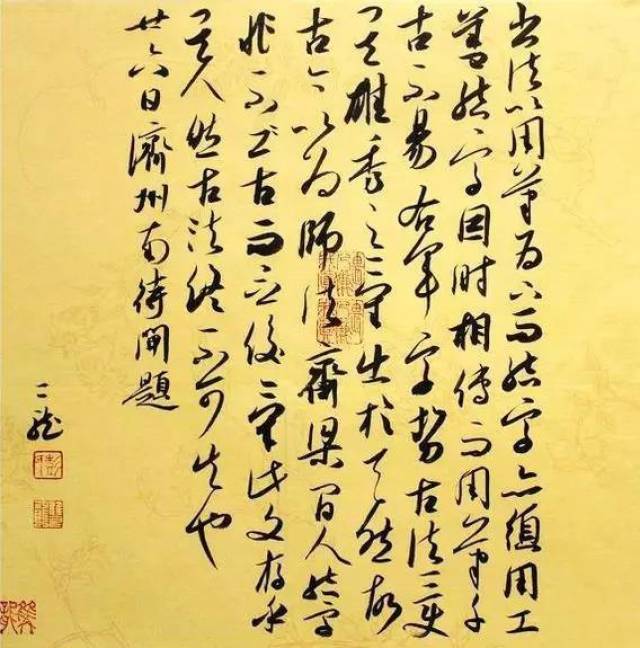 書法以用筆為上而結字亦須用工
蓋結字因時相傳而用筆千
古不易右軍字勢古法一變
其雄秀之氣出於天然故
古今以為師法齊梁間人結字
非不古而乏俊氣此又存乎
其人然古法終不可失也
廿八日濟州南待閘題